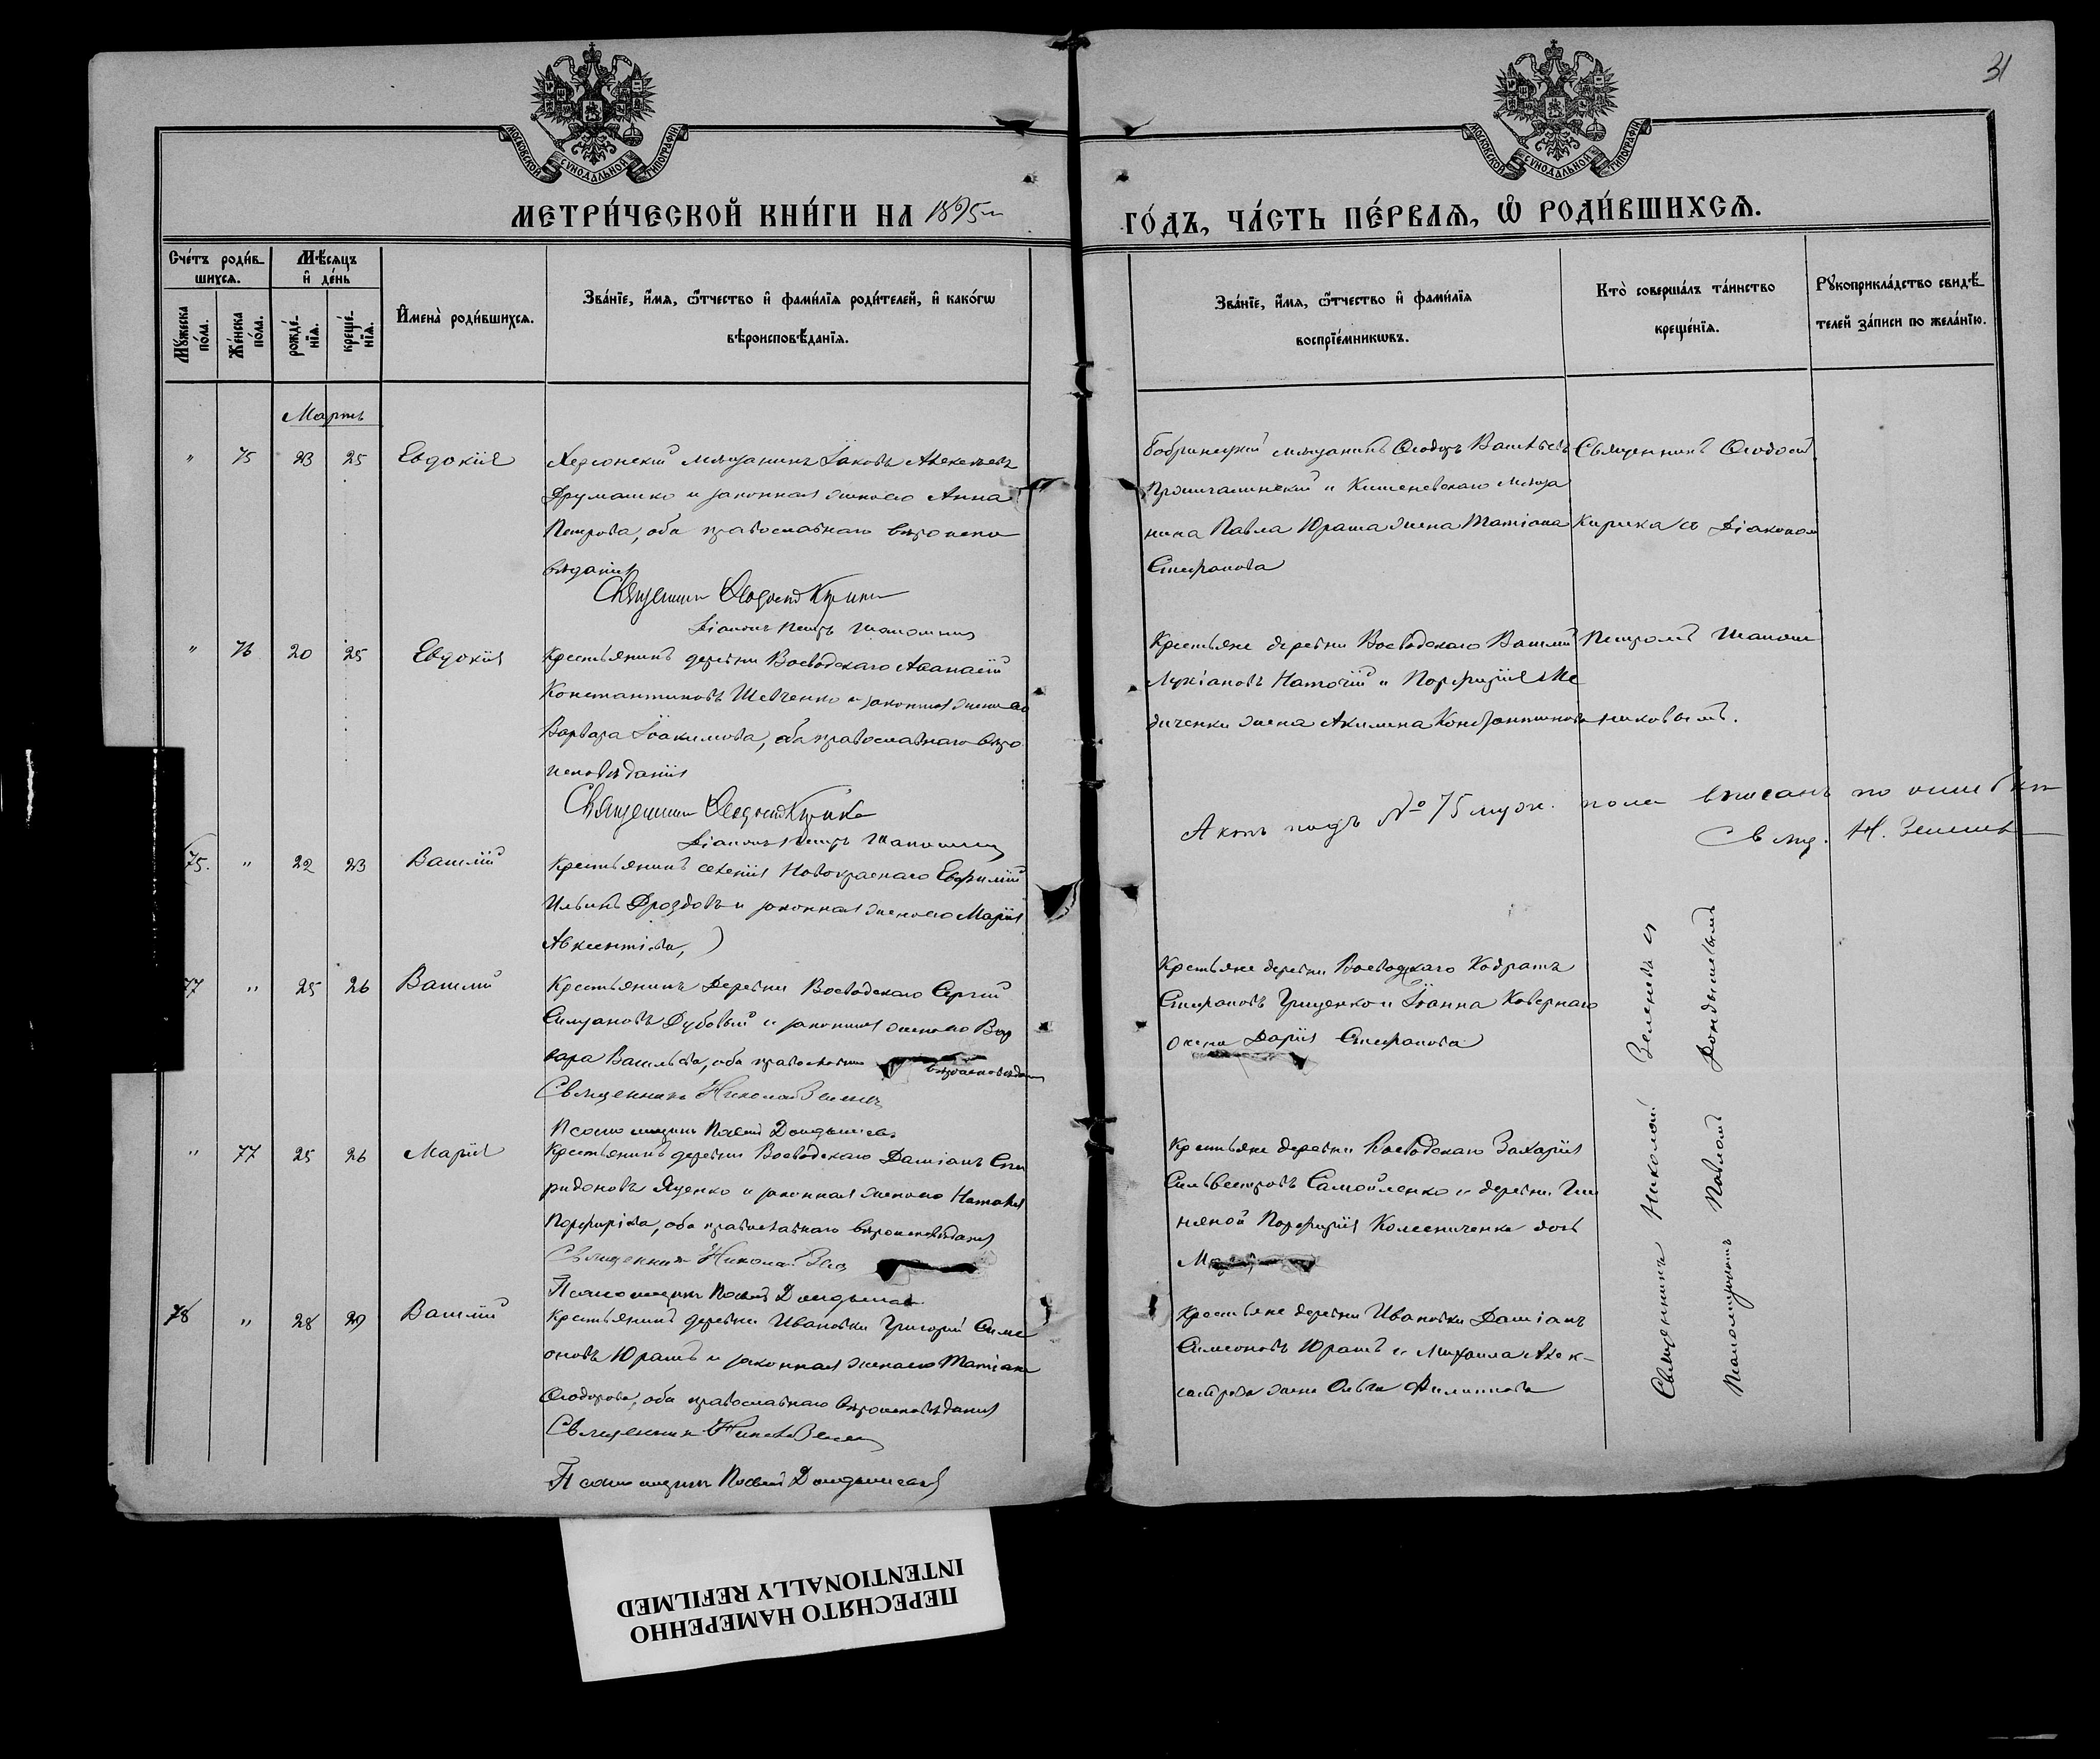 31
МОСКОВСКОЙ СѴНОДАЛЬНОЙ ТИПОГРАФІИ
МОСКОВСКОЙ СѴНОДАЛЬНОЙ ТИПОГРАФІИ
МЕТРИ́ЧЕСКОЙ КНИ́ГИ НА 1895 го
ГО́ДЪ, ЧА́СТЬ ПЕ́РВАЯ, Ѡ҆ РОДИ́ВШИХСЯ.
Сче́тъ роди́в-
шихся.
Мѣ́сяцъ
и҆ де́нь
Мꙋ́жеска
по́ла.
Же́нска
по́ла.
рожде́-
нїя.
креще́-
нїя.
И҆мена̀ роди́вшихся.
Зва́нїе, и҆́мя, ѻ҆́тчество и҆ фами́лїя роди́телей, и҆ како́гѡ
вѣроисповѣ́данїя.
Зва́нїе, и҆́мя, ѻ҆́тчество и҆ фами́лїя
воспрїе́мникѡвъ.
Кто̀ соверша́лъ та́инство
креще́нїя.
Рꙋкоприкла́дство свидѣ́-
телей за́писи по жела́нїю.
Мартъ
" 75 23 25 Евдокія
Херсонскій мѣщанинъ Іаковъ Алексѣевъ
Друмашко и законная жена его Анна
Петрова, оба православнаго вѣроиспо
вѣданія
Священникъ Ѳеодосій Кирика
Діаконъ Петръ Шапошник
Бобринецкій мѣщанинъ Ѳеодоръ Васильевъ
и Кишеневскаго мѣща
нина Павла Юраша жена Татіана
Стефанова
Священникъ Ѳеодосій
Кирика съ Діакономъ
" 76 20 25 Евдокія
Крестьянинъ деревни Воеводскаго Аѳанасій
Константиновъ Шевченко и законная жена его
Варвара Іоакимова, оба православнаго вѣро
исповѣданія
Священникъ Ѳеодосій Кирика
Діаконъ Петръ Шапошник
Крестьяне деревни Воеводскаго Василій
Лукіановъ и Порфирія Ме
диченки жена Акилина Константинова
Петромъ Шапош
никовымъ.
Актъ подъ № 75 муж. пола вписанъ по ошибкѣ
Свящ. Н. Зеленев
75. " 22 23 Василій
Крестьянинъ селенія Новокраснаго Евфимій
Ильинъ Дроздовъ и законная жена его Марія
Авксентіева,)
77 " 25 26 Василій
Крестьянинъ Деревни Воеводскаго Сергій
Симеоновъ Дубовый и законная жена его Вар
вара Васильева, оба православнаго вѣроисповѣдан
Священникъ Николай Зеленев
Псаломщикъ Павелъ Дондышевъ
Крестьяне деревни Воеводскаго Кодратъ
Стефановъ Грищенко и Іоанна Ковернаго
жена Дарія Стефанова
" 77 25 26 Марія
Крестьянинъ деревни Воеводскаго Даміанъ Спи
ридоновъ Яценко и законная жена его Наталія
Порфиріева, оба православнаго вѣроисповѣданія
Священникъ Николай Зел
Псаломщикъ Павелъ Дондышев
Крестьяне деревни Воеводскаго Захарія
Сильвестровъ Самойленко и деревни Гли
няной Порфирія Колесниченка дочь
78 " 28 29 Василій
Крестьянинъ деревни Ивановки Григорій Симе
оновъ Юрашъ и законная жена его Татіана
Ѳеодорова, оба православнаго вѣроисповѣданія
Священникъ Никол Зелен
Псаломщикъ Павелъ Дондышевъ
Крестьяне деревни Ивановки Даміанъ
Симеоновъ Юрашъ и Михаила Алек-
сандрова жена Ольга Филиппова
Священникъ Николай Зеленевъ съ
Псаломщикомъ Павломъ Дондышевымъ
ПЕРЕСНЯТО НАМЕРЕННО
INTENTIONALLY REFILMED